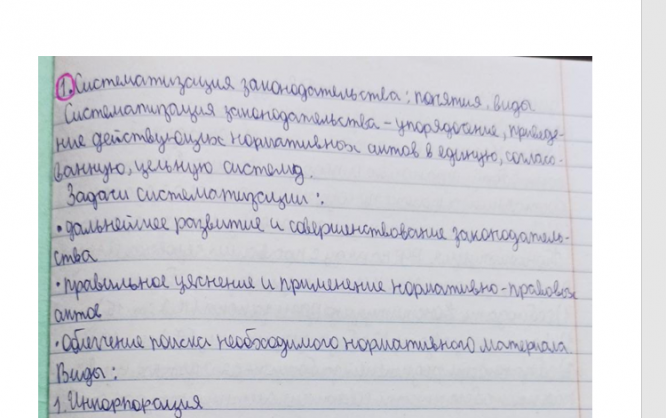 1. Систематизация законодательства: понятия, виды
Систематизация законодательства - упорядочение, приведе-
ние действующих нормативных актов в единую, согласо-
ванную, цельную систему.
Задачи систематизации:
• дальнейшее развитие и совершенствование законодатель-
ства
• правильное уяснение и применение нормативно-правовых
актов
• облегчение поиска необходимого нормативного материала
Виды:
1. Инкорпорация